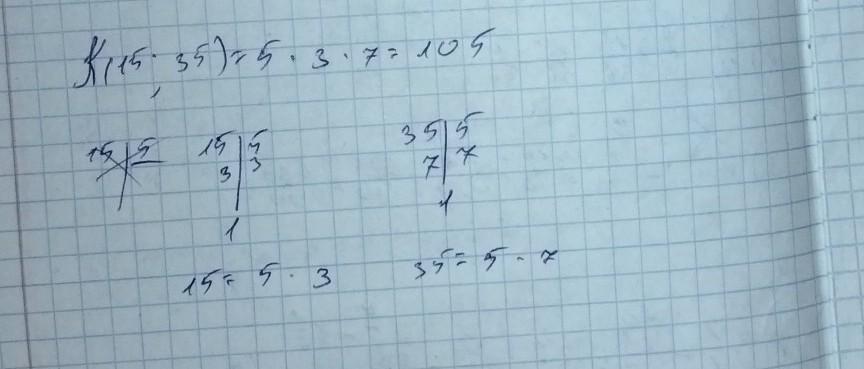 K(15; 35) = 5 · 3 · 7 = 105
15 | 5 15 | 5 35 | 5
3 | 3 7 | 7
1 1
15 = 5 · 3 35 = 5 · 7